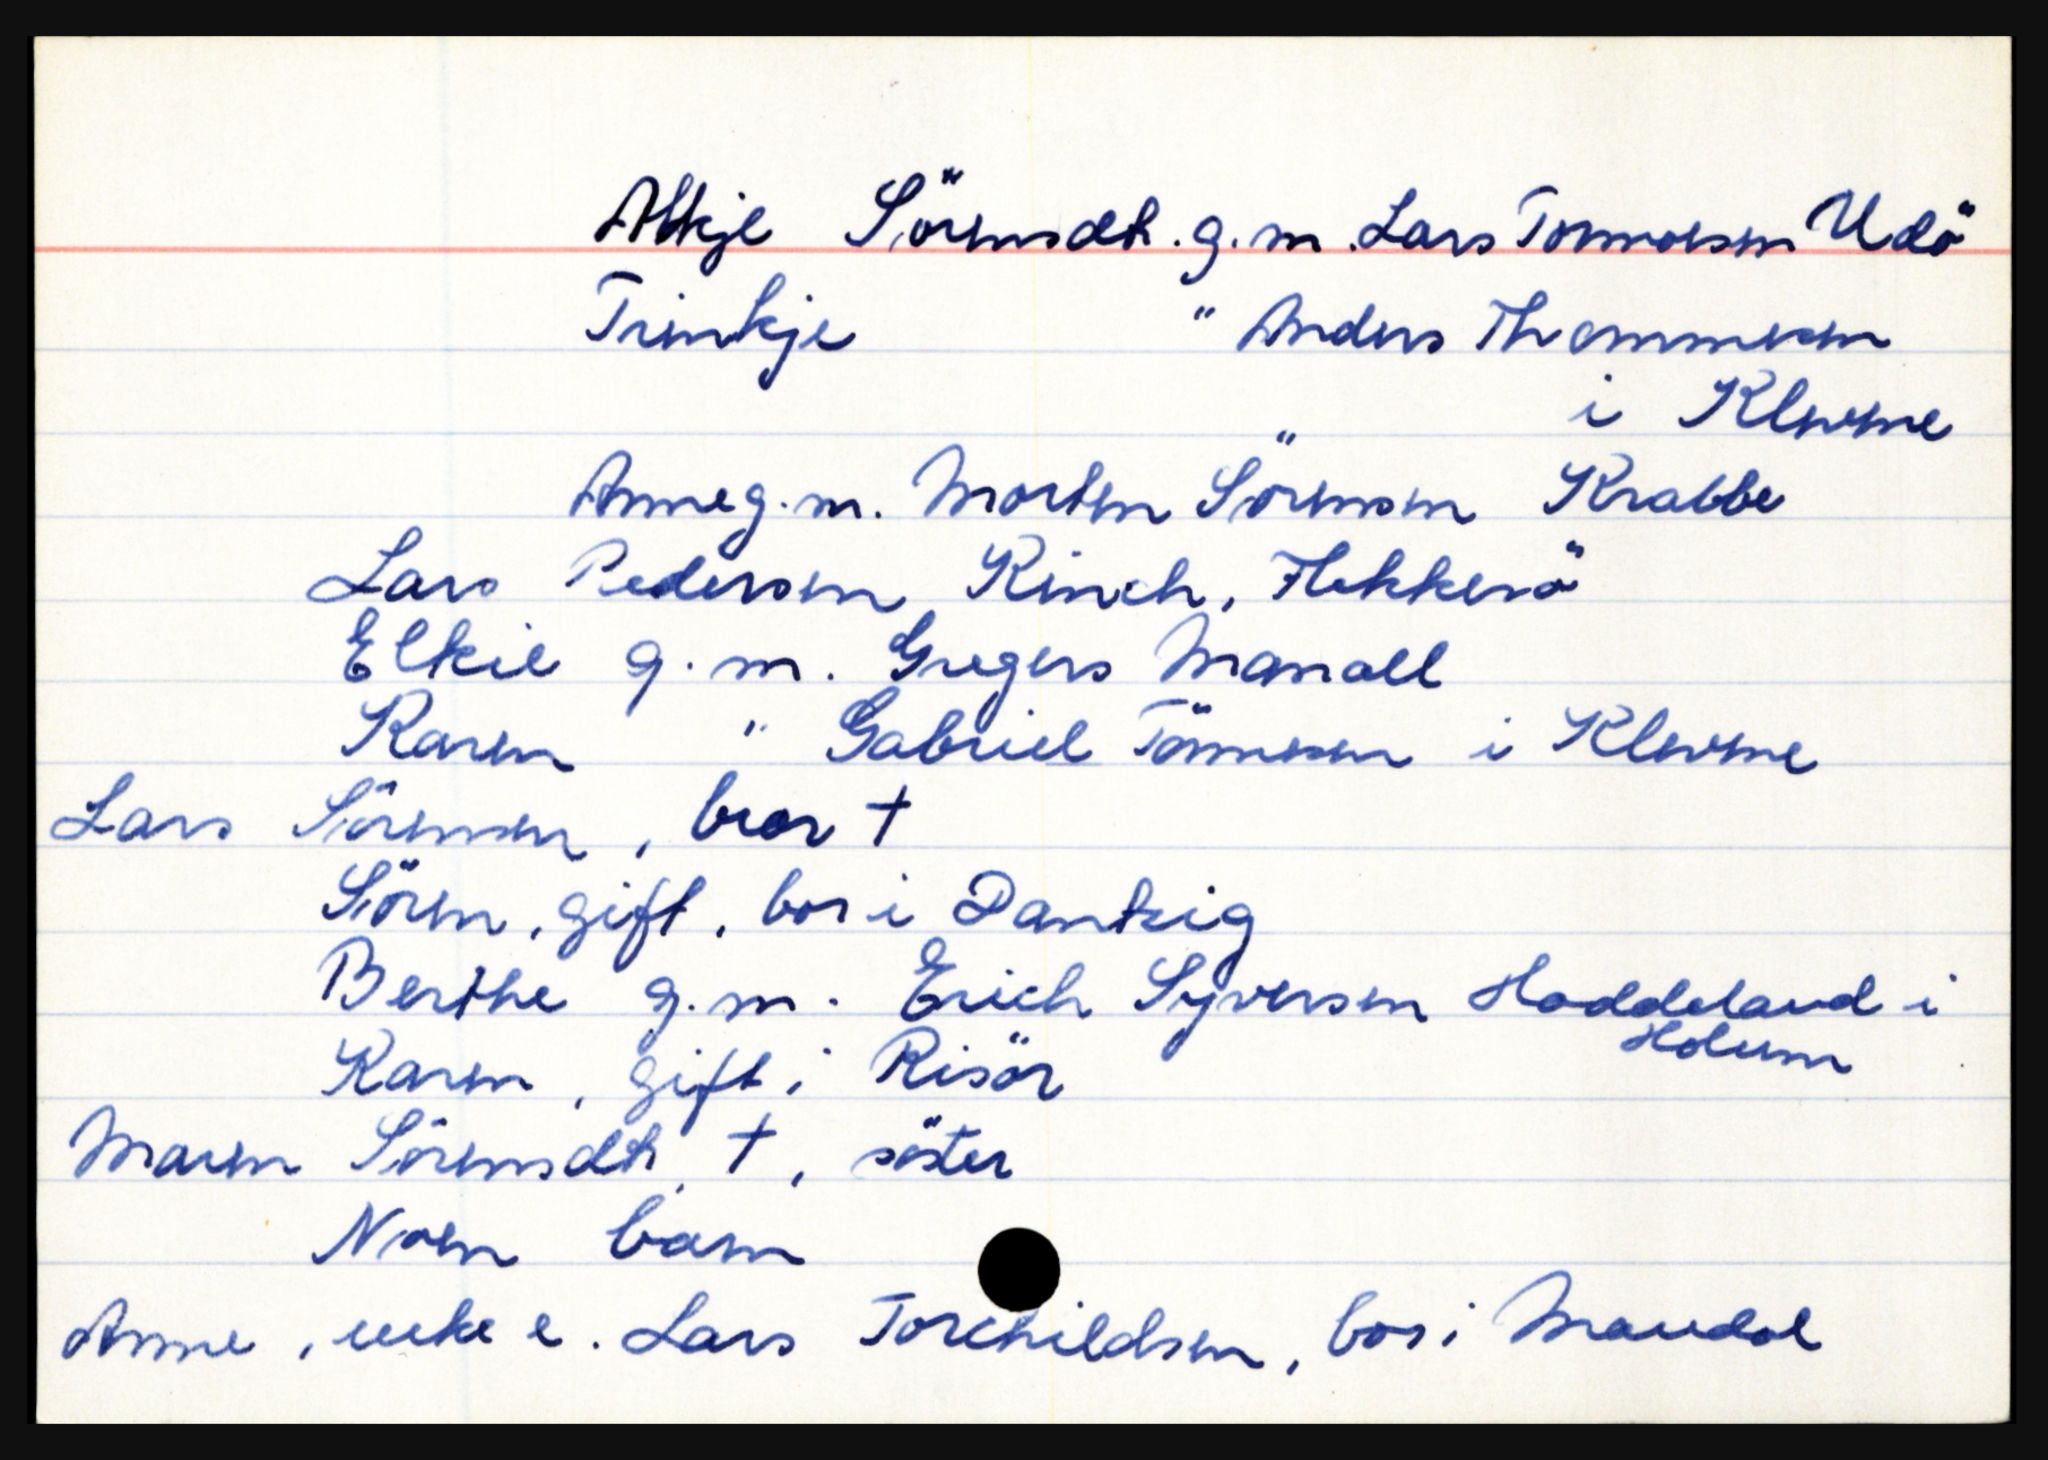 Altkje Sörensdtr. g.m. Lars Tønnesen Udö
Trinkje " Anders Thommesen
i Klevene
"
Anne g.m. Morten Sörensen Krabbe
Lars Pedersen Kinch, Flekkerö
Elkie g.m. Gregers Manall
Karen " Gabriel Tönnesen i Klevene
Lars Sörensen, bror †
Sören, gift, bor i Dantzig
Berthe g.m. Erich Syversen Haddeland i
Holum
Karen, gift i Risör
Maren Sörensdtr, †, söster
Noen barn
Anne, enke e. Lars Torchildsen, bor i Mandal